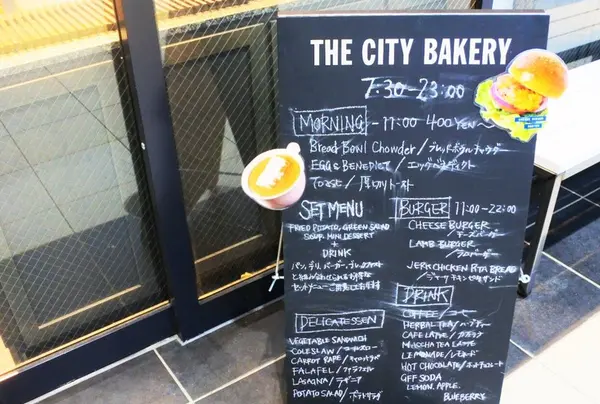 THE CITY BAKERY
7:30-23:00
MORNING -11:00 400 YEN~
Bread Bowl Chowder / ブレッドボウルチャウダ
EGG BENEDICT / エッグベネディクト
TOAST / 厚切りトースト
SET MENU
FRIED POTATO, GREEN SALAD
SOUP, MINI DESSERT
+
DRINK
パン, デリ, バーガー, ブレックファスト
セットメニューご用意しております
BURGER 11:00-22:00
CHEESE BURGER
/チーズバーガー
LAMB BURGER
/ラムバーガー
JERK CHICKEN PITA BREAD
/ジャークチキンピタサンド
DELICATESSEN
VEGETABLE SANDWICH
COLESLAW / コールスロー
CARROT RAPE / キャロットラペ
FALAFEL / ファラフェル
LASAGNA / ラザニア
POTATO SALAD / ポテトサラダ
DRINK
COFFEE / コーヒー
HERBAL TEA / ハーブティー
CAFE LATTE / カフェラテ
MATCHA TEA LATTE
LEMONADE / レモネード
HOT CHOCOLATE / ホットチョコレート
GFF SODA
LEMON. APPLE.
BLUEBERRY